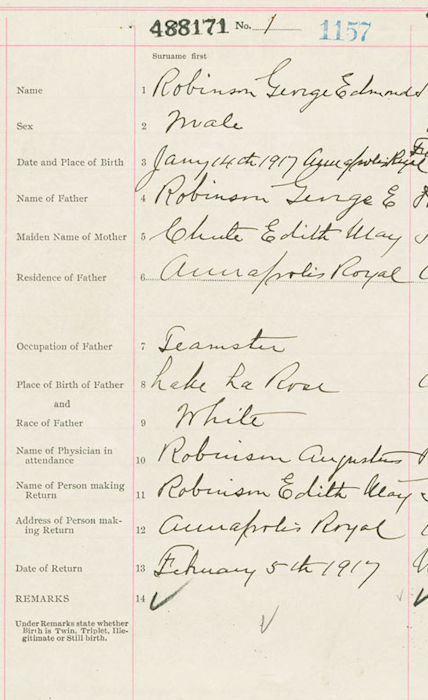 488171 No. 1 1157
Surname first
Name 1 Robinson George Edmonds
Sex 2 Male
Date and Place of Birth 3 Jany 14th 1917 Annapolis Royal
Name of Father 4 Robinson George E
Maiden Name of Mother 5 Chute Edith May
Residence of Father 6 Annapolis Royal
Occupation of Father 7 Teamster
Place of Birth of Father 8 Lake La Rose
and
Race of Father 9 White
Name of Physician in
attendance 10 Robinson Augustus
Name of Person making
Return 11 Robinson Edith May
Address of Person mak-
ing Return 12 Annapolis Royal
Date of Return 13 February 5th 1917
REMARKS 14 ✓
Under Remarks state whether
Birth is Twin, Triplet, Ille-
gitimate or Still birth.